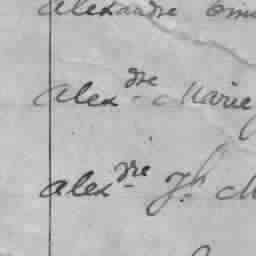 Alexandre
Alex.dre Marie
Alex.dre Jh